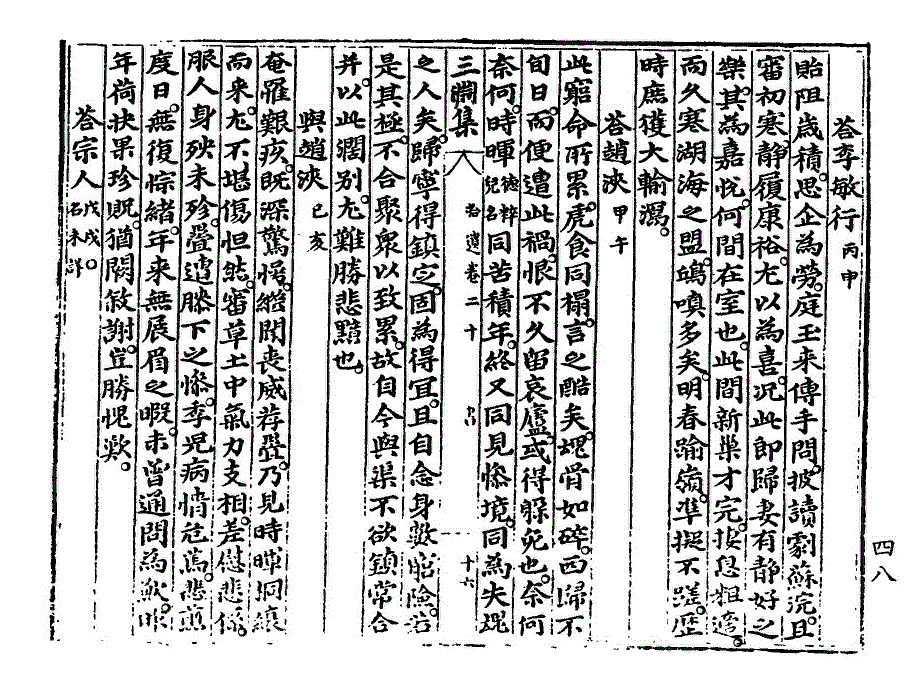 答李敏行 丙申
貽阻歲積。思企為勞。庭玉來傳手問。披讀劇蘇浣。且
審初寒。靜履康裕。尤以為喜。況此即歸妻有靜好之
樂。其為嘉悅。何間在室也。此間新巢才完。按息粗適。
而久寒湖海之盟。鷗嗔多矣。明春踰嶺。準擬不蹉。歷
時庶獲大輸瀉。
答趙浹 甲午
此窮命所累。虎食同榻。言之酷矣。魂骨如碎。西歸不
旬日。而便遭此禍。恨不久留哀廬。或得躲免也。奈何
奈何。時暉 德粹兒名 同苦積年。終又同見慘境。同為失魂
三淵集 拾遺卷二十 書 十六
之人矣。歸寧得鎮定。固為得宜。且自念身數昭險。若
是其極。不合聚眾以致累。故自今與渠不欲鎮常合
并。以此濶別。尤難勝悲黯也。
與趙浹 己亥
奄罹艱疚。旣深驚惋。繼聞喪威荐疊。乃見時暉恫瘝
而來。尤不堪傷怛。然審草土中氣力支相。差慰悲係。
服人身殃未殄。疊遭膝下之慘。季兒病情危篤。悲煎
度日。無復悰緖。年來無展眉之暇。未曾通問為歉。昨
年荷抶果珍貺。猶闕敘謝。豈勝愧歎。
答宗人 戊戌。名未詳
四八